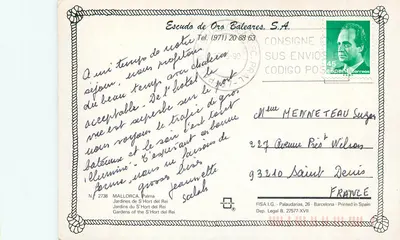 Escudo de Oro Baleares, S.A.
Tel. (971) 20 68 63
CONSIGNE
SUS ENVIOS
CODIGO POSTAL
45
A mi temps de notre
séjour, nous profitons
du beau temps avec chaleur
acceptable. De l'hotel la
vue est superbe sur le port
nous voyons le trafic de gros
bateaux et le soir c'est tout
illuminé. J'espérant en bonne
forme, nous te faisons de
grosses bises
Jeannette
Mme MENNETEAU Suzan
227 Avenue Prést Wilson
93210 Saint Denis
FRANCE
N. 2736 MALLORCA, Palma
Jardines de S'Hort del Rei
Jardins du S'Hort del Rei
Gardens of the S'Hort del Rei
FISA I.G. - Palaudarias, 26 - Barcelona - Printed in Spain
Dep. Legal B. 27577-XVII